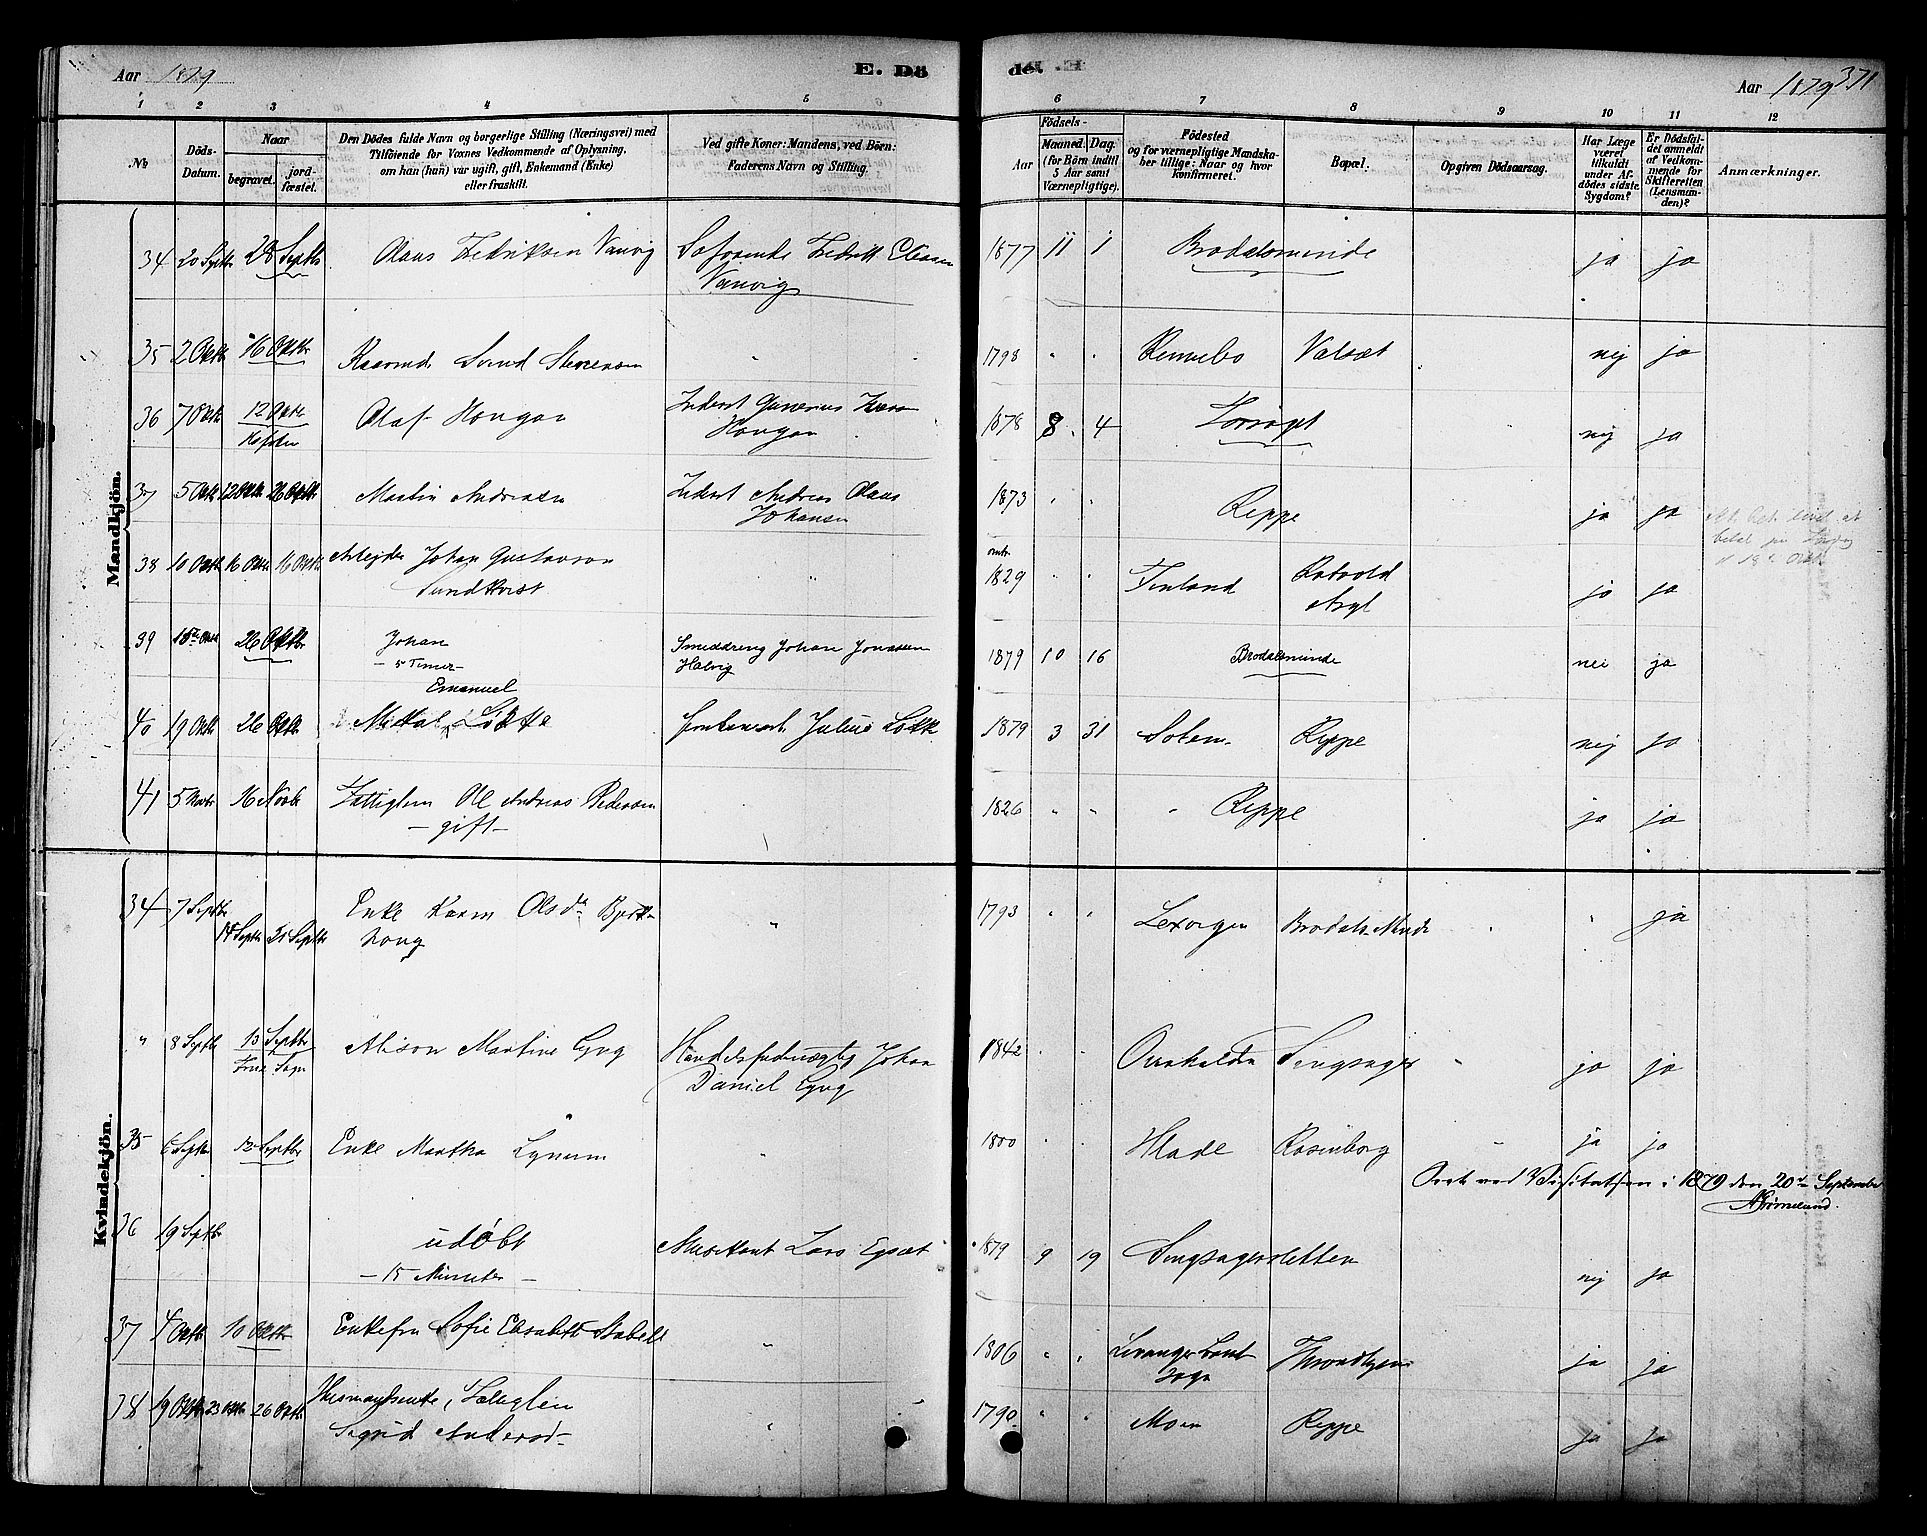 Aar 1879
E. Dö
de.
Aar 1879 371
1 2 3 4 5 6 7 8 9 10 11 12
No
Döds-Datum.
Naar
begravet.
jordfæstet.
Den Dödes fulde Navn og borgerlige Stilling (Næringsvei) med
Tilföiende for Voxnes Vedkommende af Oplysning,
om han (hun) var ugift, gift, Enkemand (Enke)
eller fraskilt.
Ved gifte Koner: Mandens, ved Börn:
Faderens Navn og Stilling.
Födsels-
Aar
Maaned.
Dag.
(for Börn indtil
5 Aar samt
Værnepligtige).
Födested
og for værnepligtige Mandska-
ber tillige: Naar og hvor
konfirmeret.
Bopæl.
Opgiven Dödsaarsag.
Har Læge
været
tilkaldt
under Af-
dödes sidste
Sygdom?
Er Dödsfal-
det anmeldt
af Vedkom-
mende for
Skifteretten
(Lensman-
den)?
Anmærkninger.
Mandkjön.
34 20 Septbr 28 Septbr Olaus Fredriksen Vanvig Fredrik
Vanvig
1877 11 1 Brodalsminde ja ja
35 2 Oktbr 16 Oktbr Svend Steensen " 1798 " " Rennebo nej ja
36 7 Oktbr 12 Oktbr Olaf Haugan Inderst Gunerius
Haugan
1878 8 4 nej ja
37 5 Oktbr 12 Oktbr 26 Oktbr Martin Andresen Inderst Andreas Olaus
Johansen
1873 " " Reppe ja ja
38 10 Oktbr 16 Oktbr 16 Oktbr Arbejder Johan Gustavson
Sundkvist
"
omtr
1829 " " Finland Rotvold
Asyl
ja ja
39 26 Oktbr Johan
- 5 Timer -
Smeddreng Johan Jonassen
1879 10 16 Brodalsminde nei ja
Emanuel
40 19 Oktbr 26 Oktbr Mikal Løkke Julius Løkke 1879 3 31 Reppe nej ja
41 5 Novbr 16 Novbr Fattiglem Ole Andreas Pedersen
- gift -
1826 " " " Reppe ja ja
Kvindekjön.
34 7 Septbr 14 Septbr 21 Septbr Enke Karen Olsdr Bjørk-
haug
" 1793 " " Lexvigen Brodals Minde " " ja
" 8 Septbr 10 Septbr
Frue Sogn
Martine Gyvg Johan
Daniel Gyvg
1842 " " Overhalden Singsager " ja ja
35 6 Septbr 12 Septbr Enke Martha Lynum " 1800 " " Hlade Rosenborg " ja ja
Seet ved Visitatsen i 1879 den 20de September
36 19 Septbr udøbt
- 15 Minuter -
Musikant Lars
1879 9 19 Singsagersletten nej ja
37 4 Oktbr 10 Oktbr Enkefru Sofie Elisabeth Stabell " 1806 " " Levanger Land
Sogn
Throndhjem ja ja
38 19 Oktbr 23 Oktbr 26 Oktbr Husmandsenke, Fattiglem
Sigrid Andersd-
" 1790 " " Moen Reppe ja ja